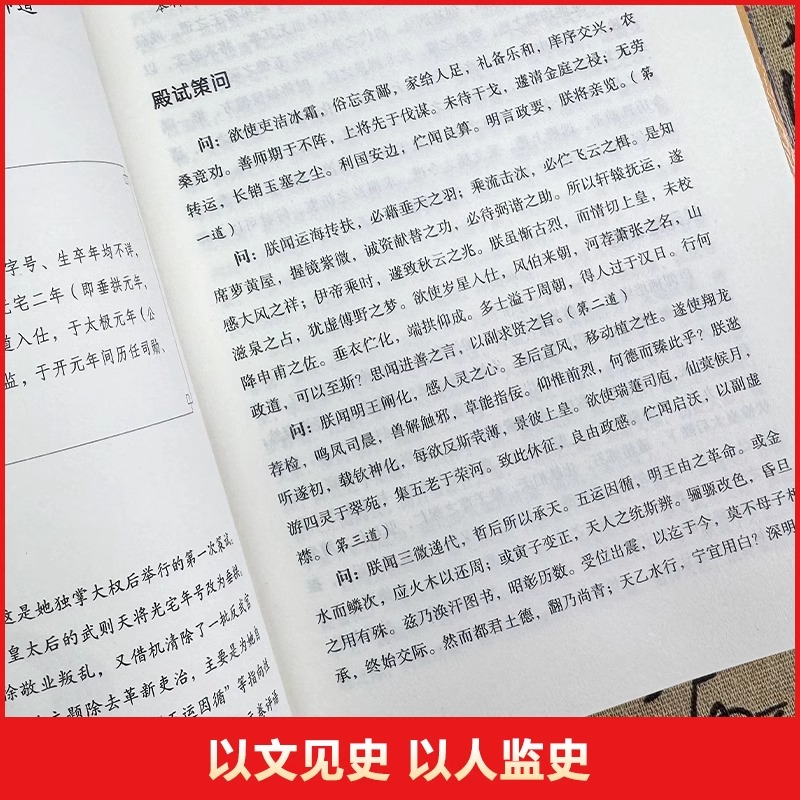 字号、生卒年均不详,
光宅二年(即垂拱元年,
道入仕,于太极元年(公
监,于开元年间历任司勋、
这是她独掌大权后举行的第一次策试,
皇太后的武则天将光宅年号改为垂拱,
徐敬业叛乱,又借机清除了一批反武官
主题除去革新吏治,主要是为她自
五运因循”等指向性
殿试策问
问:欲使吏洁冰霜,俗忘贪鄙,家给人足,礼备乐和,庠序交兴,农
桑竞劝。善师期于不阵,上将先于伐谋。未待干戈,遽清金庭之祲;无劳
转运,长销玉塞之尘。利国安边,伫闻良算。明言政要,朕将亲览。(第
一道)
问:朕闻运海抟扶,必藉垂天之羽;乘流击汰,必伫飞云之楫。是知
席萝黄屋,握镜紫微,诚资献替之功,必待弼谐之助。所以轩辕抚运,遂
感大风之祥;伊帝乘时,遽致秋云之兆。朕虽惭古烈,而情切上皇,未校
滋泉之占,犹虚傅野之梦。欲使岁星入仕,风伯来朝,河荐萧张之名,山
降申甫之佐。垂衣伫化,端拱仰成。多士溢于周朝,得人过于汉日。行何
政道,可以至斯?思闻进善之言,以副求贤之旨。(第二道)
问:朕闻明王阐化,感人灵之心。圣后宣风,移动植之性。遂使翔龙
荐检,鸣凤司晨,兽解触邪,草能指佞。仰惟前烈,何德而臻此乎?朕逖
听遂初,载钦神化,每欲反斯茕薄,景彼上皇。欲使瑞萐司庖,仙蓂候月,
游四灵于翠苑,集五老于荣河。致此休征,良由政感。伫闻启沃,以副虚
襟。(第三道)
问:朕闻三微递代,哲后所以承天。五运因循,明王由之革命。或金
水而鳞次,应火木以还周;或寅子变正,天人之统斯辨。骊骠改色,昏旦
之用有殊。兹乃涣汗图书,昭彰历数。受位出震,以迄于今,莫不母子相
承,终始交际。然而都君土德,翻乃尚青;天乙水行,宁宜用白?深明
以文见史 以人监史